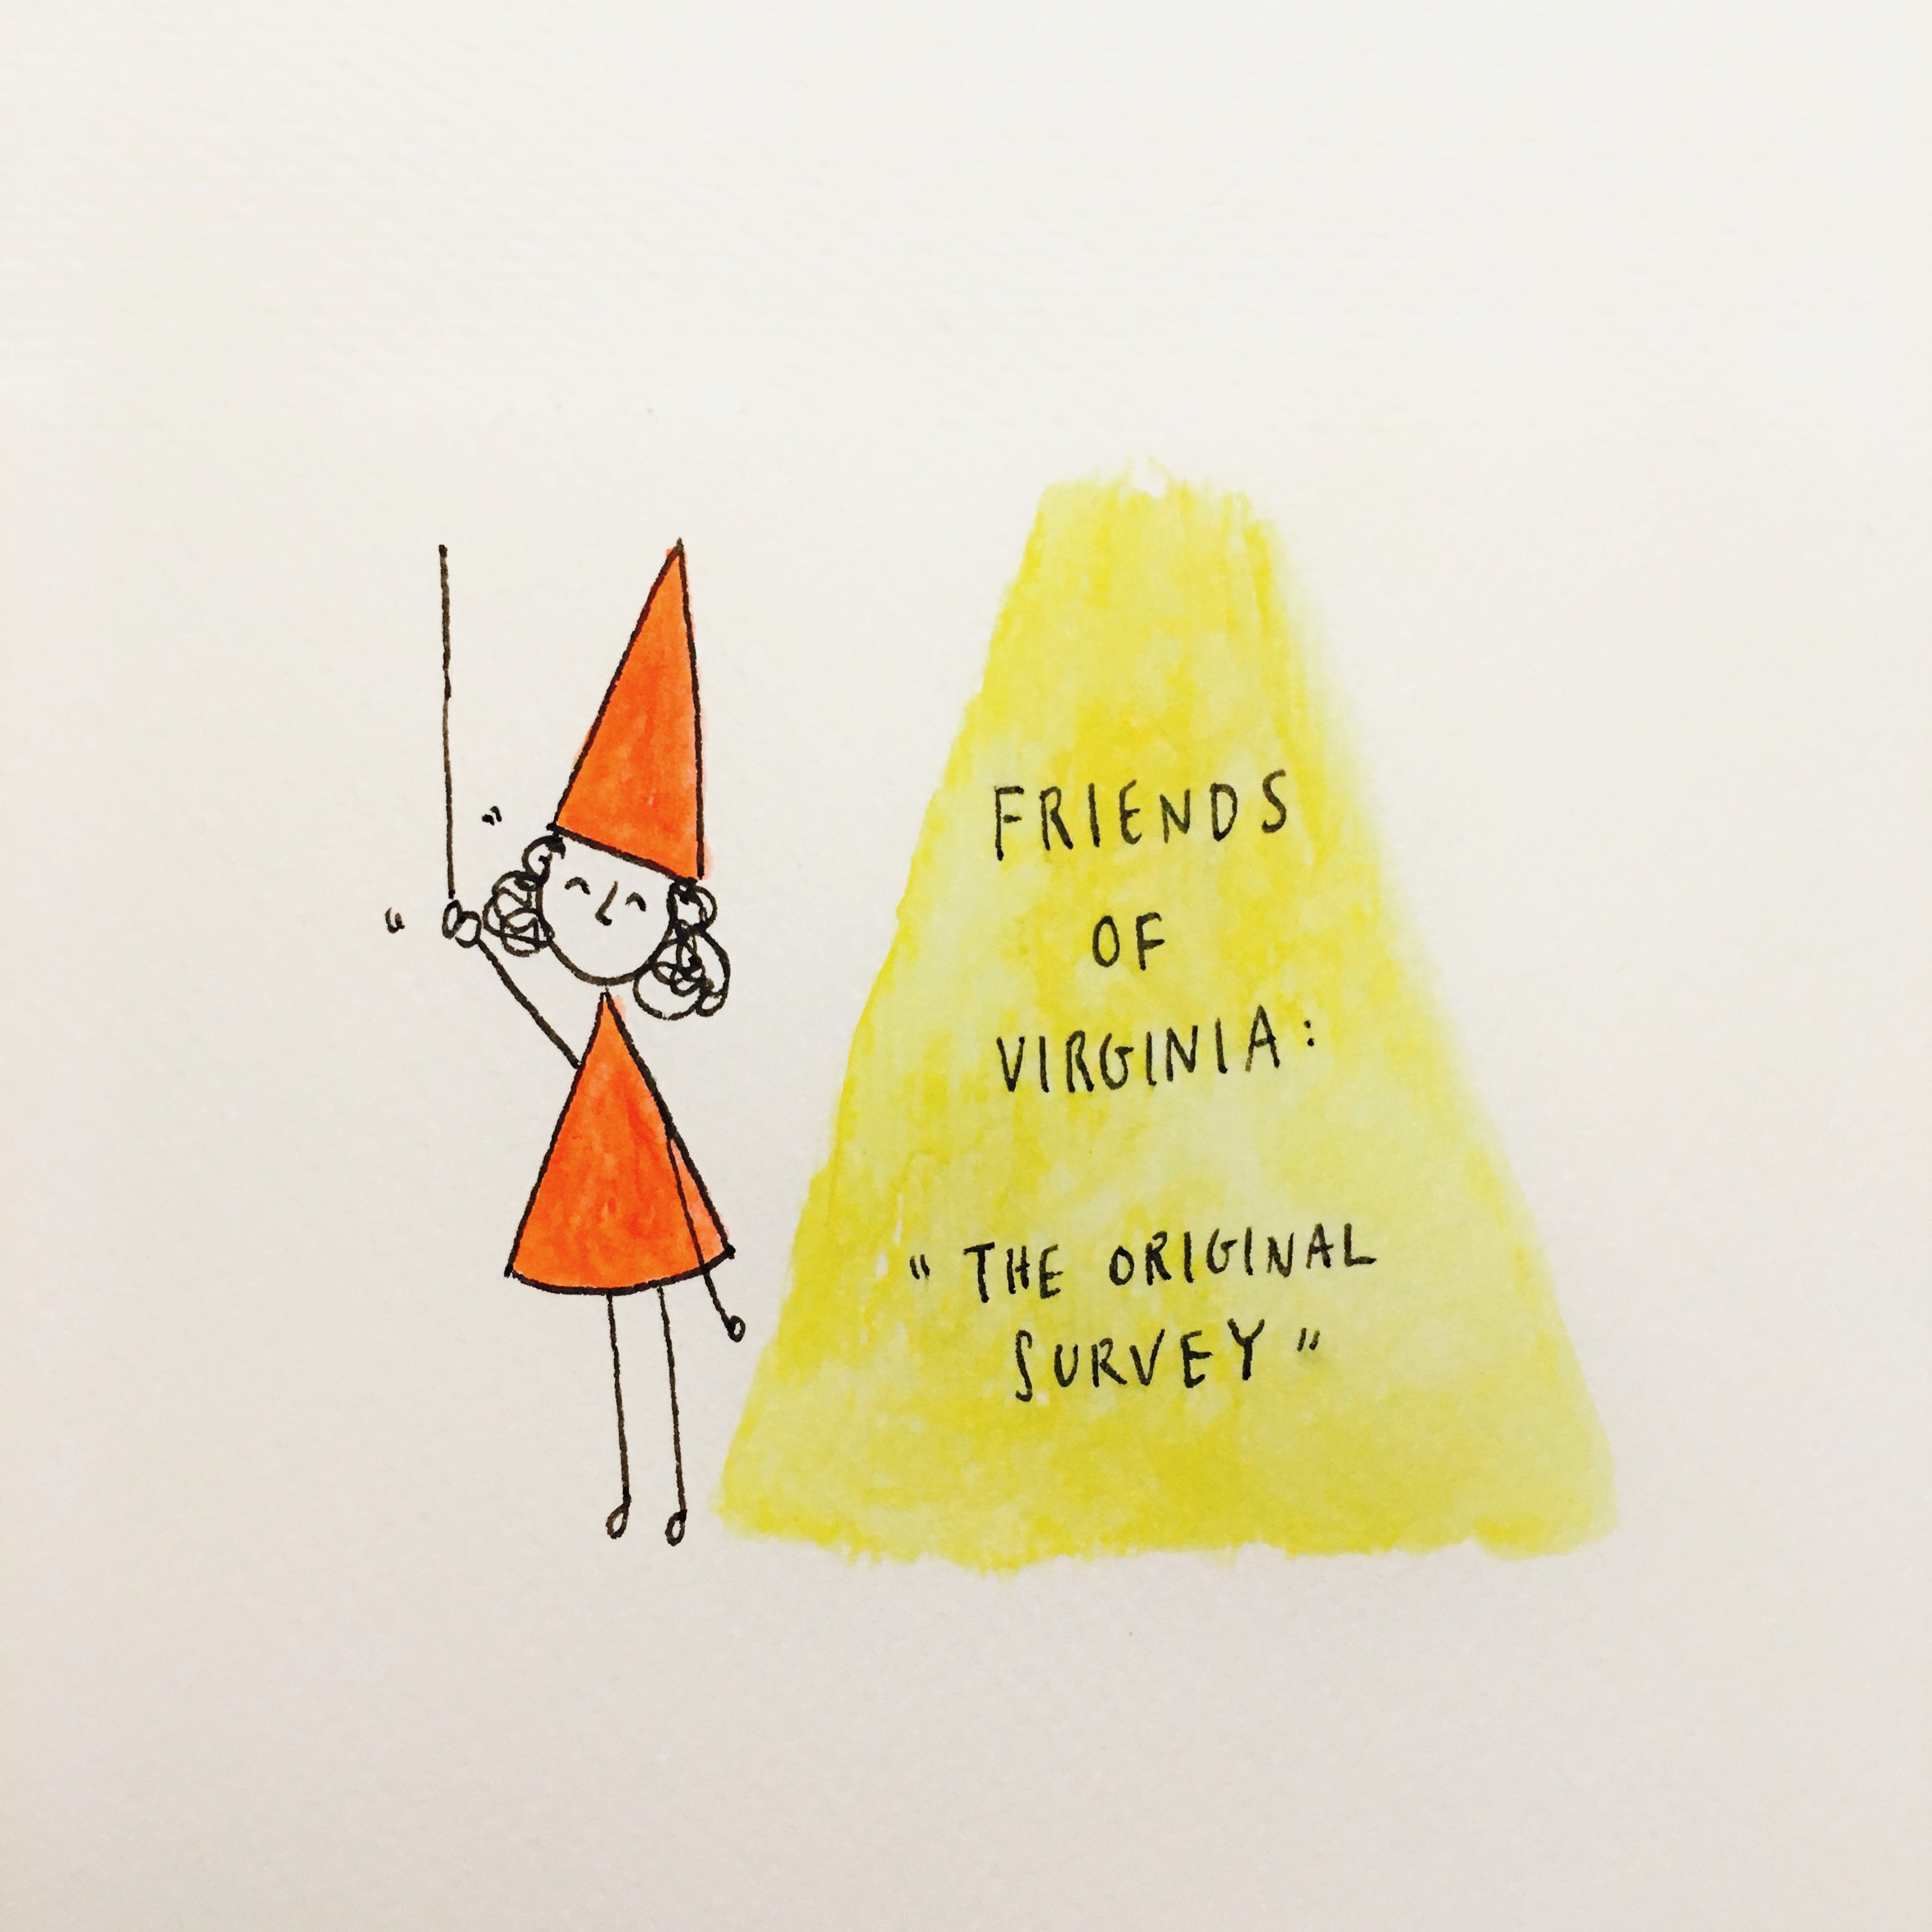 FRIENDS
OF
VIRGINIA:
"THE ORIGINAL
SURVEY"